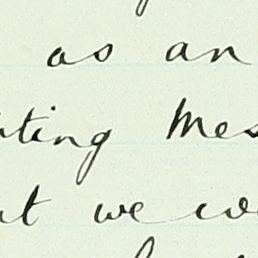 as an
ting Mes
t we